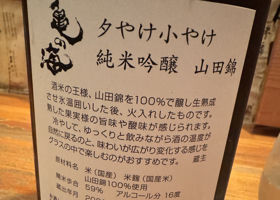 亀の海
夕やけ小やけ
純米吟醸 山田錦
酒米の王様、山田錦を100%で醸し生熟成
させ氷温囲いした後、火入れしたものです。
熟した果実様の旨味や酸味が感じられます。
冷やして、ゆっくりと飲みながら酒の温度が
自然に戻るのと、味わいが広がり変化する感じを
グラスの中で楽しむのがおすすめです。
蔵主
原材料名 米(国産) 米麹(国産米)
山田錦100%使用
精米歩合 59% アルコール分 16度
蔵出年月